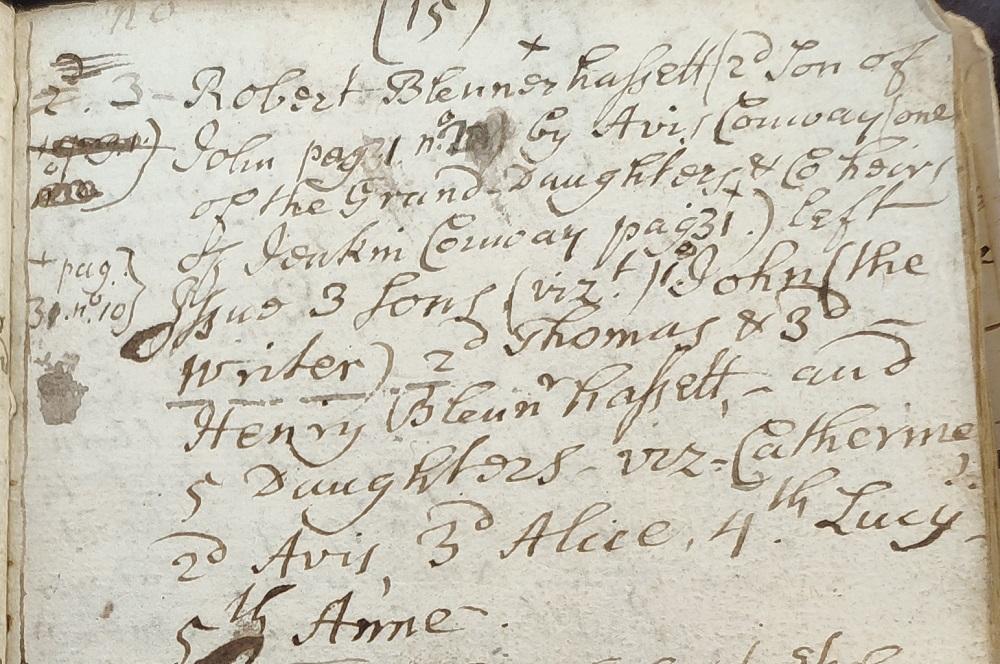 (15)
2d. 3 - Robert Blennerhassett (2d Son of
John pag 31. no. by Avis Conway (one
of the Grand-Daughters & Co heirs
of Jenkin Conway pag 31.) left
+ pag.
31. no. 10}
Issue 3 sons (vizt.) 1o. John (the
writer) 2d Thomas & 3d -
Henry Blennrhassett, - and
5 Daughters - viz - Catherine
2d Avis, 3d Alice, 4th. Lucy -
5th Anne.